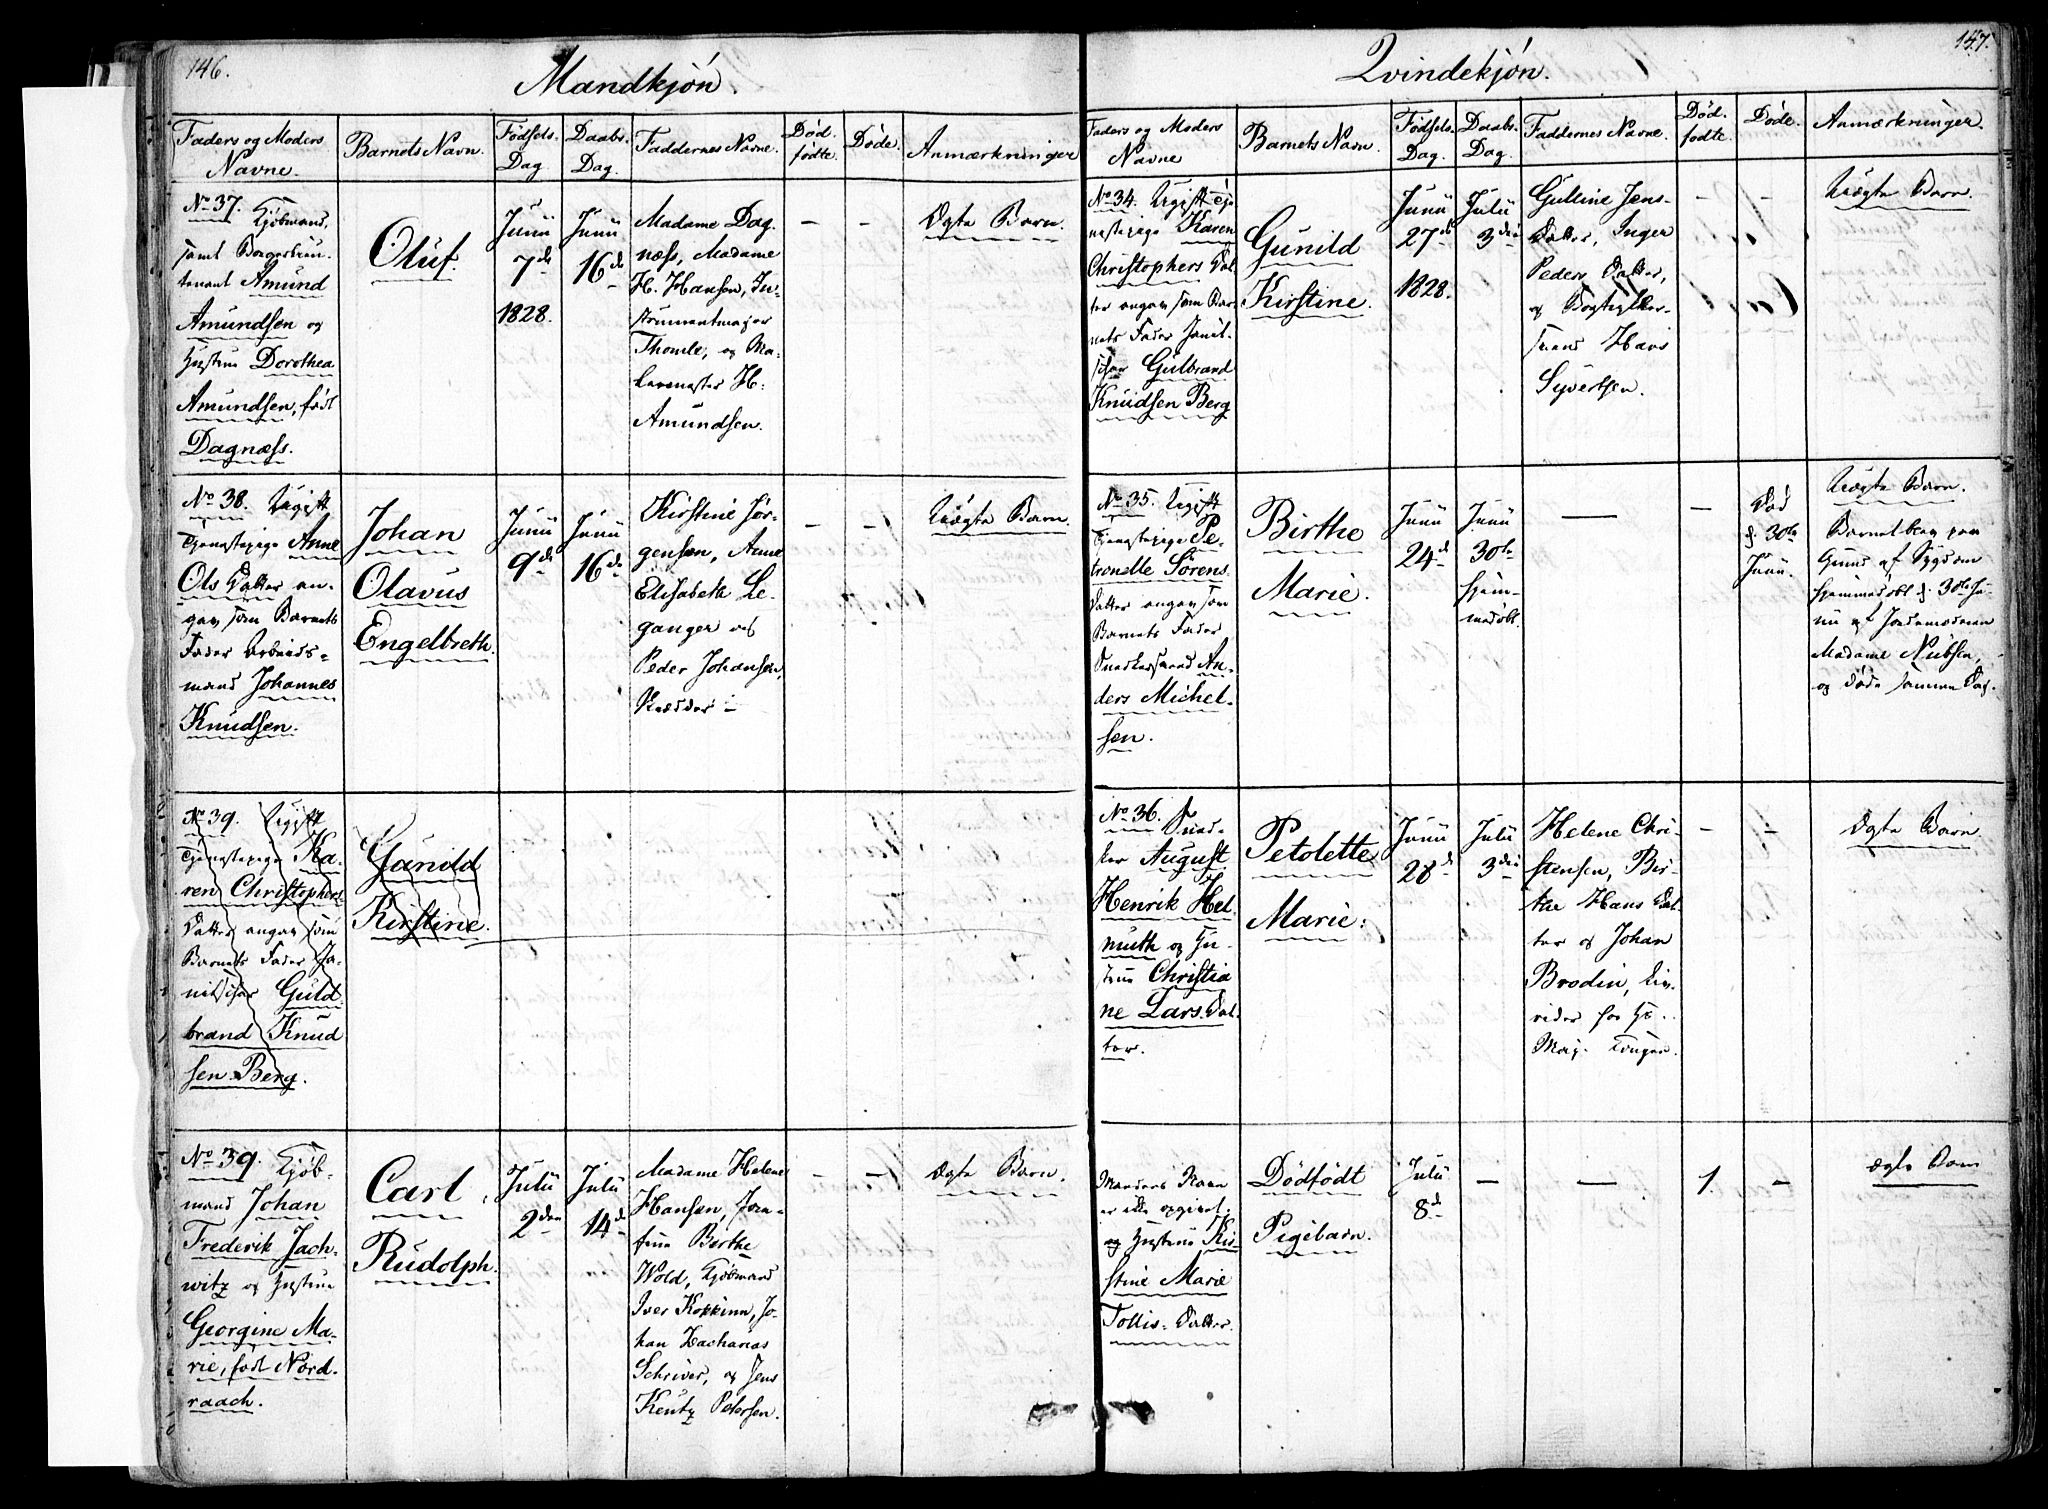 146.
Mandkjön.
Faders og Moders
Navne.
Barnets Navn.
Fødsels-
Dag.
Daabs-
Dag.
Faddernes Navne.
Død-
födte.
Døde.
Anmærkninger
No 37. Kjöbmand,
samt Borgerlieu-
tenant Amund
Amundsen og
Hustru Dorothea
Amundsen, født
Dagnæss.
Oluf.
Junii
7de
1828.
Junii
16de
Madame Dag-
næss, Madame
H. Hansen, In-
strumentmager
Thomle, og Ma-
lermester H.
Amundsen.
–
–
Ægte Barn
No 38. Ugift
Tjenestepige Anne
Ols Datter an-
gav som Barnets
Fader Arbeids-
mand Johannes
Knudsen.
Johan
Olavus
Engelbreth.
Junii
9de
Junii
16de
Kirstine Jör-
gensen, Anne
Elisabeth Le-
ganger og
Peder Johansen,
–
–
Uægte Barn.
No 39. Ugift
Tjenestepige Ka-
ren Christophers-
Datter angav som
Barnets Fader Ja-
nitschar Guld-
brand Knud
sen Berg.
Gunild
Kirstine.
No 39. Kjöb-
mand Johan
Frederik Jach-
witz og Hustrue
Georgine Ma-
rie, født Nord-
raach.
Carl
Rudolph.
Julii
2den
Julii
14de
Madame Helene
Hansen, Jom-
frue Birthe
Wold, Kjöbmand
Iver Kokkinn, Jo-
han Zacharias
Schriver, og Jens
Keutz Petersen.
–
–
Ægte Barn.
147.
Qvindekjön.
Faders og Moders
Navne
Barnets Navn.
Fødsels-
Dag.
Daabs-
Dag.
Faddernes Navne.
Död-
födte.
Døde.
Anmærkninger.
No 34. Ugift Tje-
nestepige Karen
Christophers Dat-
ter angav som Bar-
nets Fader Janit-
schar Gulbrand
Knudsen Berg
Gunild
Kirstine.
Junii
27de
1828.
Julii
3die
Gulline Jens-
Datter, Inger
Peders Datter,
og
Svend Hans
Syvertsen.
–
–
Uægte Barn.
No 35. Ugift
Tjenestepige Pe-
tronelle Sörens
Datter angav som
Barnets Fader
Snedkersvend An-
ders Michel-
sen.
Birthe
Marie.
Junii
24de
Junii
30te
hjem-
medøbt.
—
–
Död
d. 30te
Junii.
Uægte Barn.
Barnet blev paa
Grund af Sygdom
hjemmedøbt d. 30te Ju-
nii af Jordemoderen
Madame Nübsen,
og døde samme Dag.
No 36. Sned-
ker August
Henrik Hel-
muth og Hu-
strue Christia
ne Lars Dat-
ter.
Petolette
Marie.
Junii
28de
Julii
3die
Helene Chri-
stensen, Bir-
the Hans Dat-
ter og Johan
Brodin,
–
–
Ægte Barn
Mandens Navn
er ikke opgivet.
og Hustrue Kir-
stine Marie
Tollis-Datter.
Dödfödt
Pigebarn.
Julii
8de
–
—
1.
–
Ægte Barn